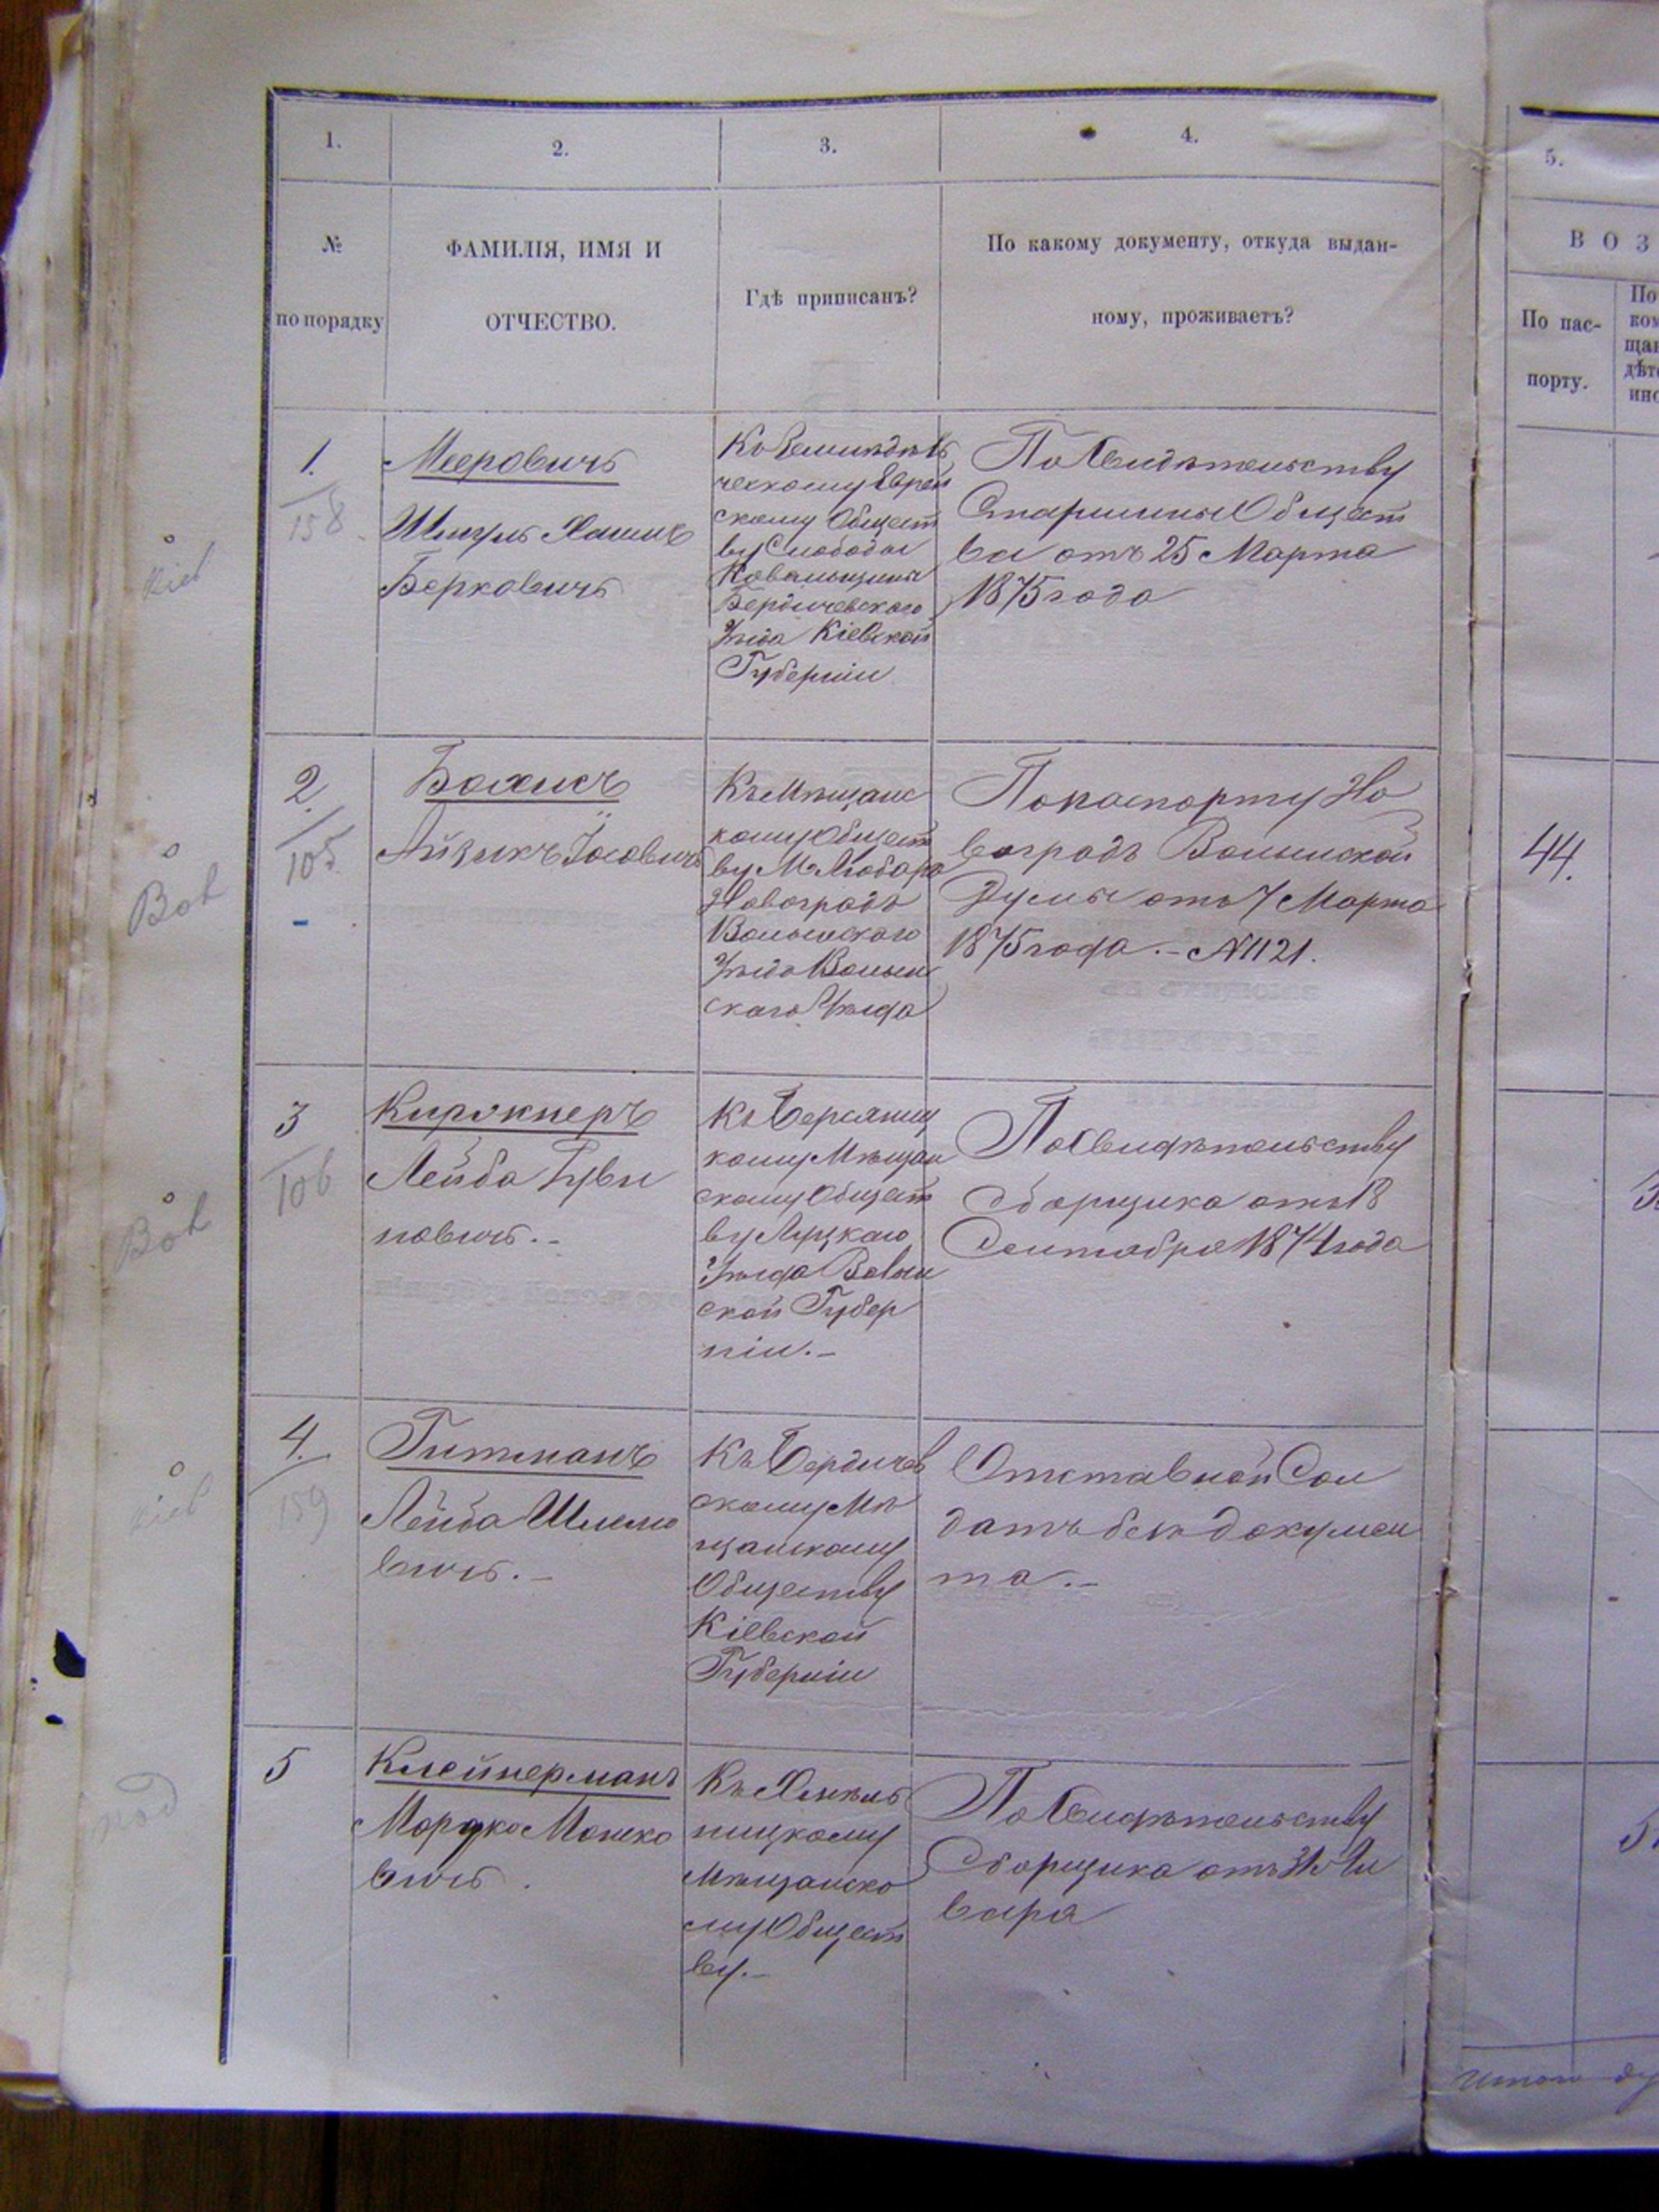 1.
2.
3.
4.
5.
№
по порядку
ФАМИЛІЯ, ИМЯ И
ОТЧЕСТВО.
Гдѣ приписанъ?
По какому документу, откуда выдан-
ному, проживаетъ?
ВОЗ
По пас-
порту.
1.
158
Мееровичъ
Шмуль Хаимъ
Берковичъ
ческому Еврей
скому Общест
ву Слободы
Бердичевскаго
Уѣзда Кіевской
Губерніи
По Свидѣтельству
Старшины Общест
ва отъ 25 Марта
1875 года
2.
105
Айзикъ Іосовичъ
Къ Мѣщанс
кому Общест
ву М. Любара
Новоградъ
Волынскаго
Уѣзда Волын
скаго Уѣзда
По паспорту Но
воградъ Волынской
Думы отъ 7 Марта
1875 года. – № 1121.
44.
3
106
Киржнеръ
Лейба
новичъ. –
кому Мѣщан
скому Общест
ву Луцкаго
Уѣзда Волын
ской Губер
ніи. –
По Свидѣтельству
Сборщика отъ 18
Сентября 1874 года
4.
159
Гитманъ
Лейба Шлемо
вичъ. –
Къ Бердичев
скому Мѣ
щанскому
Обществу
Кіевской
Губерніи
Отставной Сол
датъ безъ докумен
та. –
5
Клейнерманъ
Мордко Мошко
вичъ.
Къ Хмѣль
ницкому
Мѣщанско
му Общест
ву. –
По Свидѣтельству
Сборщика отъ 31 Ян
варя
Итого